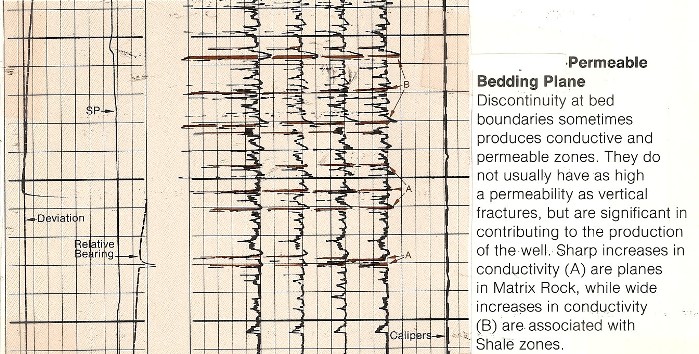 SP
Deviation
Relative
Bearing
B
A
A
Calipers
Permeable
Bedding Plane
Discontinuity at bed
boundaries sometimes
produces conductive and
permeable zones. They do
not usually have as high
a permeability as vertical
fractures, but are significant in
contributing to the production
of the well. Sharp increases in
conductivity (A) are planes
in Matrix Rock, while wide
increases in conductivity
(B) are associated with
Shale zones.